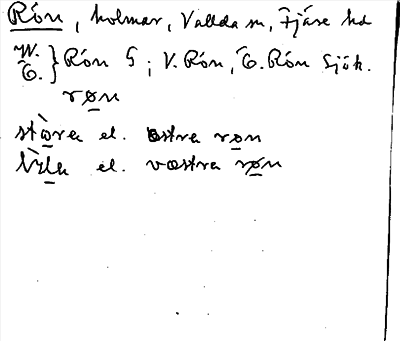 Rón, holmar, Vallda sn, Fjäre hd
V. Ö. } Rón G; V. Rón, Ö. Rón Sjök.
røn
stòra el. østra røn
lìzla el. væstra røn